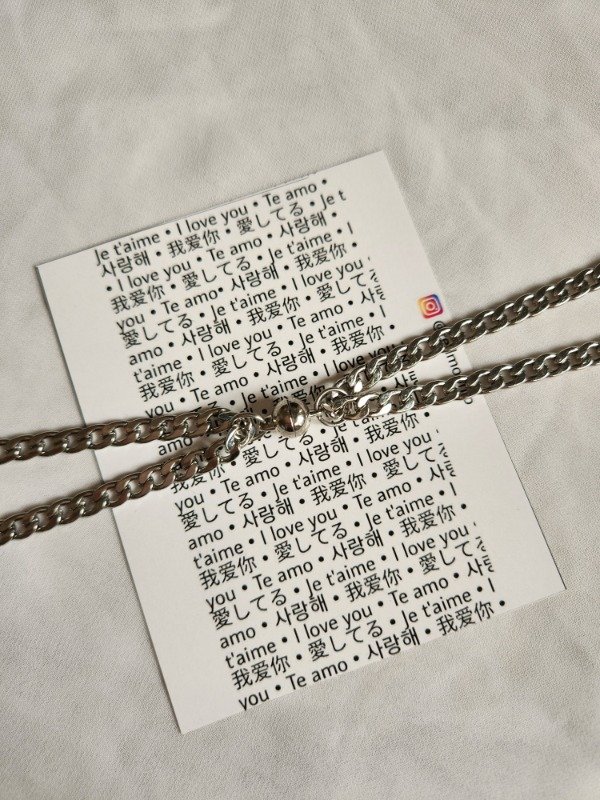 Je t'aime • I love you • Te amo •
사랑해 • 我爱你 • 愛してる • Je t
• I love you • Te amo • 사랑해 •
我爱你 • 愛してる • Je t'aime • I
you • Te amo • 사랑해 • 我爱你
愛してる • Je t'aime • I love you
amo • 사랑해 • 我爱你 • 愛して
t'aime • I love you • Te amo • 사랑
我爱你 • 愛してる • Je t'aime • I
you • Te amo • 사랑해 • 我爱你 •
愛してる • Je t'aime • I love you
amo
t'aime
我爱你
you • Te amo • 사랑해 • 我爱你
愛してる • Je t'aime • I love you
amo • 사랑해 • 我爱你 • 愛して
t'aime • I love you • Te amo • 사랑
我爱你 • 愛してる • Je t'aime • I
you • Te amo • 사랑해 • 我爱你 •
愛してる • Je t'aime • I love you
amo • 사랑해 • 我爱你 • 愛して
t'aime • I love you • Te amo • 사랑
我爱你 • 愛してる • Je t'aime • I
you • Te amo • 사랑해 • 我爱你 •